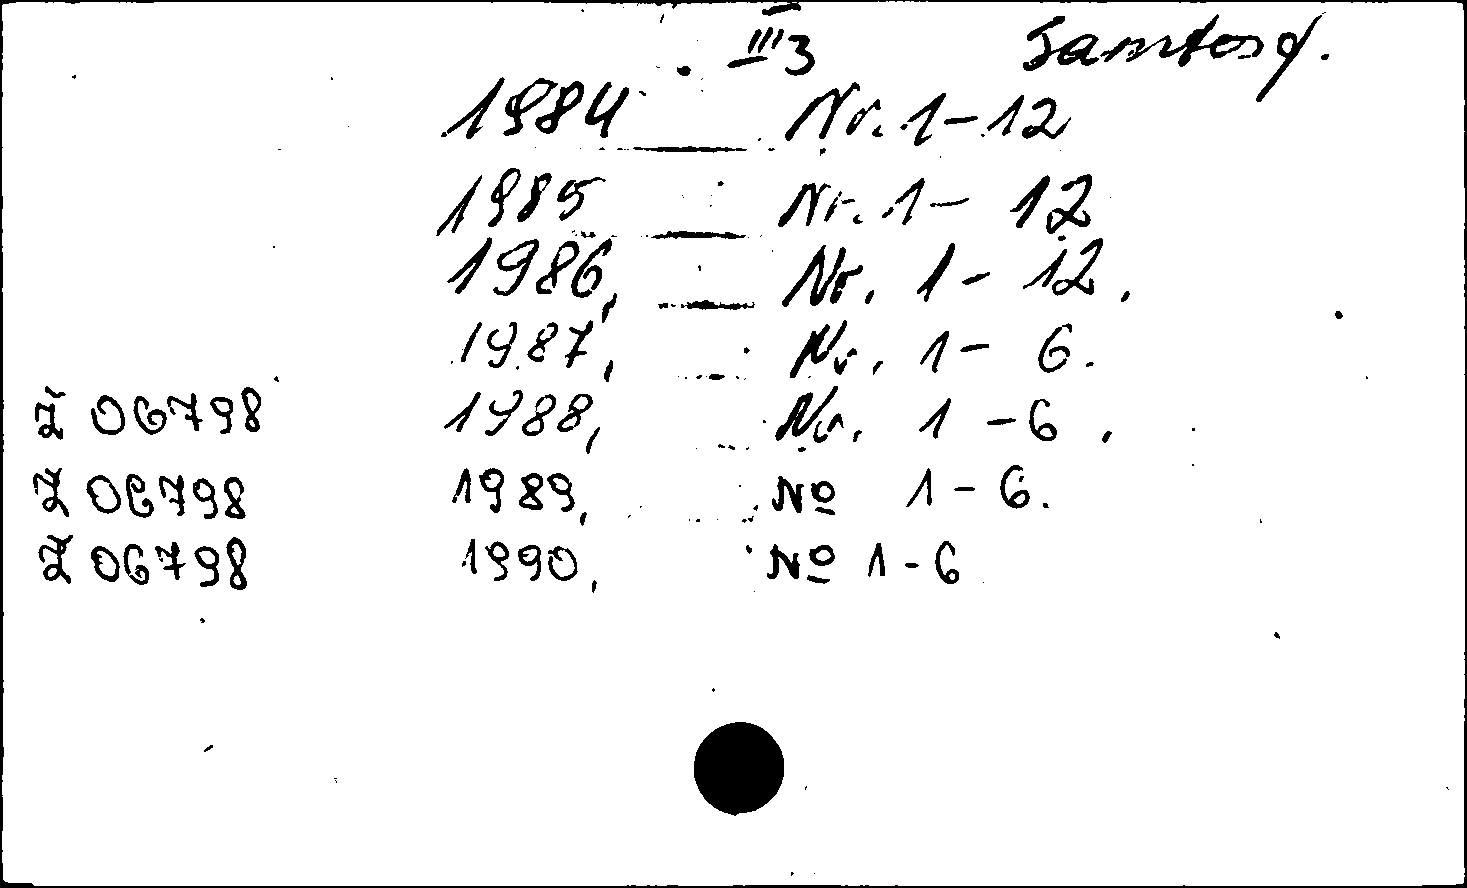 III 3
1984 Nr. 1-12
1985 Nr. 1- 12
1986, Nr. 1- 12.
1987, Nr. 1- 6.
Z 06798 1988, Nr. 1 -6.
Z 06798 1989, Nº 1-6.
Z 06798 1990, Nº 1-6